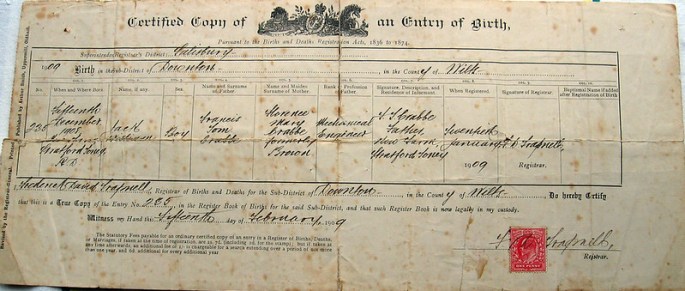 Certified Copy of an Entry of Birth,
Pursuant to the Births and Deaths Registration Acts, 1836 to 1874.
Superintendent Registrar's District Salisbury
1909 Birth in the Sub-District of Downton in the County of Wilts
No. When and Where Born Name, if any Sex Name and Surname of Father Name and Maiden Surname of Mother Rank or Profession of Father Signature, Description, and Residence of Informant When Registered Signature of Registrar Baptismal Name if added after Registration of Birth
Fifteenth Florence F T Crabbe
December Jack Francis Mary Mechanical Father Seventh
235 1908 William Boy Tom Crabbe Engineer New Farm January F D Trapnell
Crabbe formerly Stratford Toney 1909 Registrar.
Stratford Toney Brown
R.D.
Frederick David Trapnell, Registrar of Births and Deaths for the Sub-District of Downton, in the County of Wilts, Do hereby Certify
that this is a True Copy of the Entry No. 235, in the Register Book of Births for the said Sub-District, and that such Register Book is now legally in my custody.
Witness my Hand this Fifteenth day of February, 1909
The Statutory Fees payable for an ordinary certified copy of an entry in a Register of Births, Deaths,
or Marriages, if taken at the time of registration, are 2s. 7d. (including 1d. for the stamp); but if taken at
any other time, an additional fee of 1/- is chargeable for a search extending over a period of not more
than one year, and 6d. additional for every additional year
F D Trapnell
Registrar.